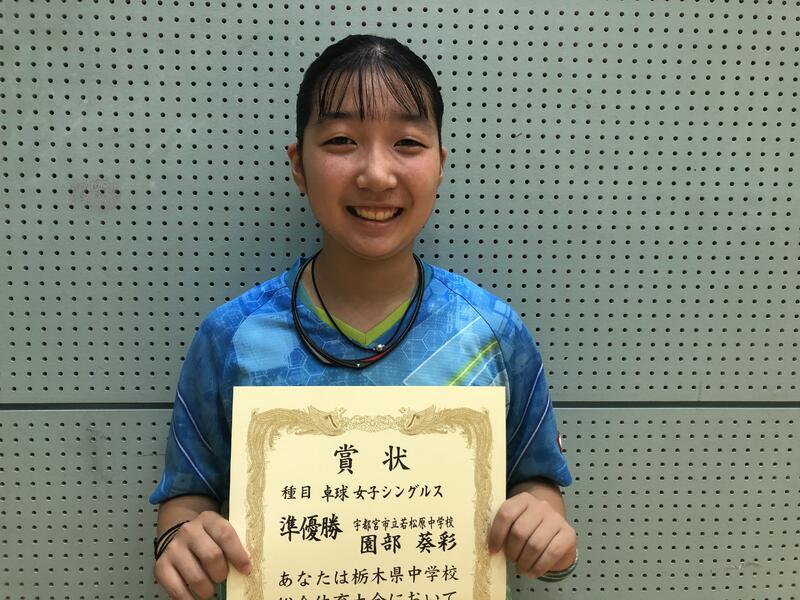 賞状
種目 卓球 女子シングルス
準優勝 宇都宮市立若松原中学校
園部 葵彩
あなたは栃木県中学校
総合体育大会において